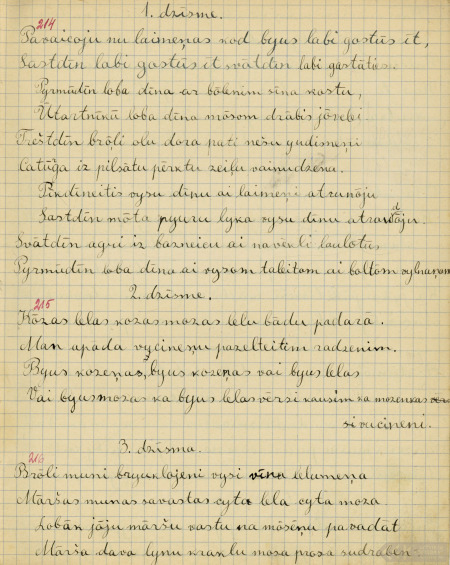 1. dzīsme.
214
Pavaicoju nu laimeņas kod byus labi gostūs īt,
Sastdīn labi gostūs īt svātdīn labi gostātīs.
Pyrmūdīn loba dīna ar bōlenim sīna kostu,
Ūtartnīkā loba dīna mōsom drābis jōzebi.
Trešdīn brōli olu dora pati nesu yudisneņi
Catūrta iz pilsātu pērktu zeiļu vainudzenu.
Pikdineitis vysu dīnu ai laimeņi atrunōju
Sastdīn mōta pyuru lyka vysu dīnu atraudōju.
Svātdīn agri iz bazneicu ai navenli laulotūs,
Pyrmūdīn loba dīna ai vysom taleitom ai boltom
2. dzīsme.
215
Kōzas lelas kozas mozas lelu bādu padarā.
Man apada vycineņu pazelteitim radzenim.
Byus kozeņas, byus kozeņas vai byus lelas
Vai byus mozas ka byus lelas vērsi kausim ka mozenkas
si vucineni.
3. dzīsma.
216
Brōli muni bryuklojeni vysi vīna lelumeņa
Māršas munas savastas cyta lela cyta moza
Lobāk jōju māršu vastu na mōseņu pavadāt
Mārša dava lynu kraklu mosa prosa sudraben